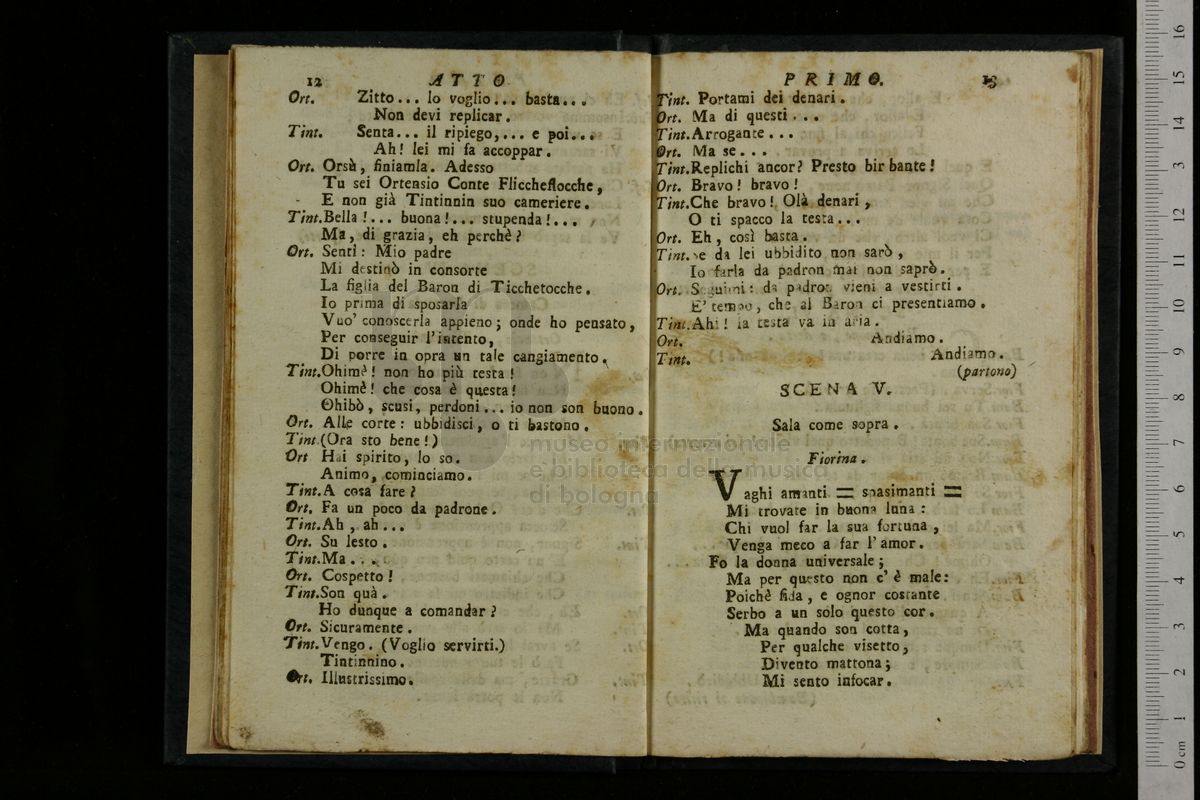 12 ATTO
Ort. Zitto... Io voglio... basta...
Non devi replicar.
Tint. Senta... il ripiego,... e poi...
Ah! lei mi fa accoppar.
Ort. Orsù, finiamla. Adesso
Tu sei Ortensio Conte Fliccheflocche,
E non già Tintinnin suo cameriere.
Tint. Bella!... buona!... stupenda!...
Ma, di grazia, eh perchè?
Ort. Senti: Mio padre
Mi destinò in consorte
La figlia del Baron di Ticchetocche.
Io prima di sposarla
Vuo' conoscerla appieno; onde ho pensato,
Per conseguir l'intento,
Di porre in opra un tale cangiamento.
Tint. Ohimè! non ho più testa!
Ohimè! che cosa è questa!
Ohibò, scusi, perdoni... io non son buono.
Ort. Alle corte: ubbidisci, o ti bastono.
Tint. (Ora sto bene!)
Ort Hai spirito, lo so.
Animo, cominciamo.
Tint. A cosa fare?
Ort. Fa un poco da padrone.
Tint. Ah, ah...
Ort. Su lesto.
Tint. Ma...
Ort. Cospetto!
Tint. Son quà.
Ho dunque a comandar?
Ort. Sicuramente.
Tint. Vengo. (Voglio servirti.)
Tintinnino.
Ort. Illustrissimo.
PRIMO. 13
Tint. Portami dei denari.
Ort. Ma di questi...
Tint. Arrogante...
Ort. Ma se...
Tint. Replichi ancor? Presto birbante!
Ort. Bravo! bravo!
Tint. Che bravo! Olà denari,
O ti spacco la testa...
Ort. Eh, così basta.
Tint. Se da lei ubbidito non sarò,
Io farla da padron mai non saprò.
Ort. Seguimi: da padron vieni a vestirti.
E' tempo, che al Baron ci presentiamo.
Tint. Ahi! la testa va in aria.
Ort. Andiamo.
Tint. Andiamo.
(partono)
SCENA V.
Sala come sopra.
Fiorina.
Vaghi amanti = spasimanti =
Mi trovate in buona luna:
Chi vuol far la sua fortuna,
Venga meco a far l'amor.
Fo la donna universale;
Ma per questo non c'è male:
Poichè fida, e ognor costante
Serbo a un solo questo cor.
Ma quando son cotta,
Per qualche visetto,
Divento mattona;
Mi sento infocar.
museo internazionale
e biblioteca della musica
di bologna
0 cm 1 2 3 4 5 6 7 8 9 10 11 12 13 14 15 16